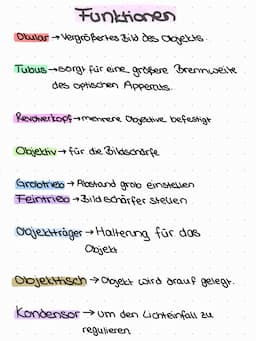 Funktionen
Okular → Vergrößertes Bild des Objekts.
Tubus → sorgt für eine größere Brennweite
des optischen Apperats.
Revolverkopf → mehrere Objektive befestigt
Objektiv → für die Bildschärfe
Grobtrieb → Abstand grob einstellen
Feintrieb → Bild schärfer stellen
Objektträger → Halterung für das
Objekt
Objekttisch → Objekt wird drauf gelegt.
Kondensor → um den Lichteinfall zu
regulieren